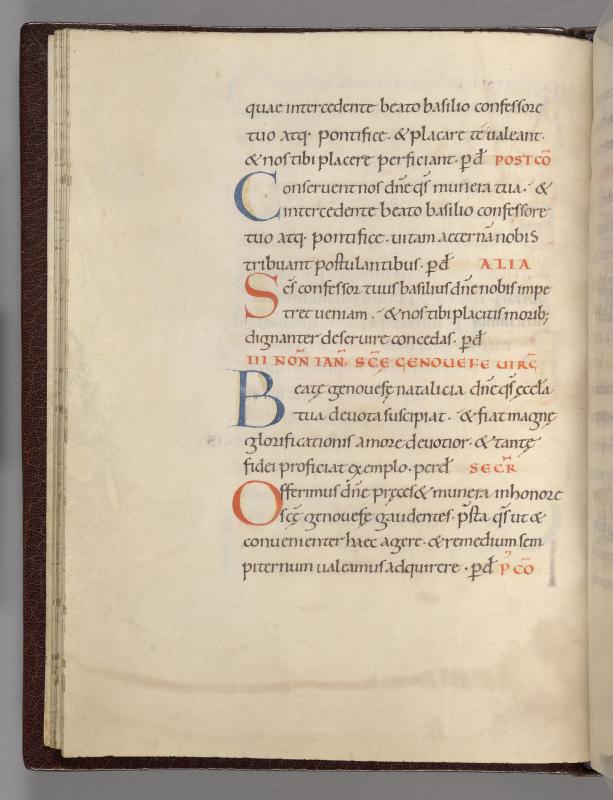 quae intercedente beato basilio confessore
tuo atq· pontifice· & placare te ualeant·
& nos tibi placere perficiant· p̄ dn̄ POST CŌ
Conseruent nos dn̄e qs̄ munera tua· &
intercedente beato basilio confessore
tuo atq· pontifice· uitam aeternā nobis
tribuant postulantibus· p̄ dn̄ ALIA
Scs̄ confessor tuus basilius dn̄e nobis impe
tret ueniam· & nos tibi placitis morib;
dignanter deseruire concedas· p̄ dn̄
III NOÑ IAÑ SCE̜ GENOUEFE UIRG̅
Beate̜ genouefe̜ natalicia dn̄e qs̄ eccl̄a
tua deuota suscipiat· & fiat magne̜
glorificationis amore deuotior· & tante̜
fidei proficiat exemplo· per dn̄ SECR̅
Offerimus dn̄e pre̜ces & munera in honore
sc̄e̜ genouefe̜ gaudentes· p̄sta qs̄ ut &
conuenienter haec agere· & remedium sem
piternum ualeamus adquirere· p̄ dn̄ P̉ CŌ